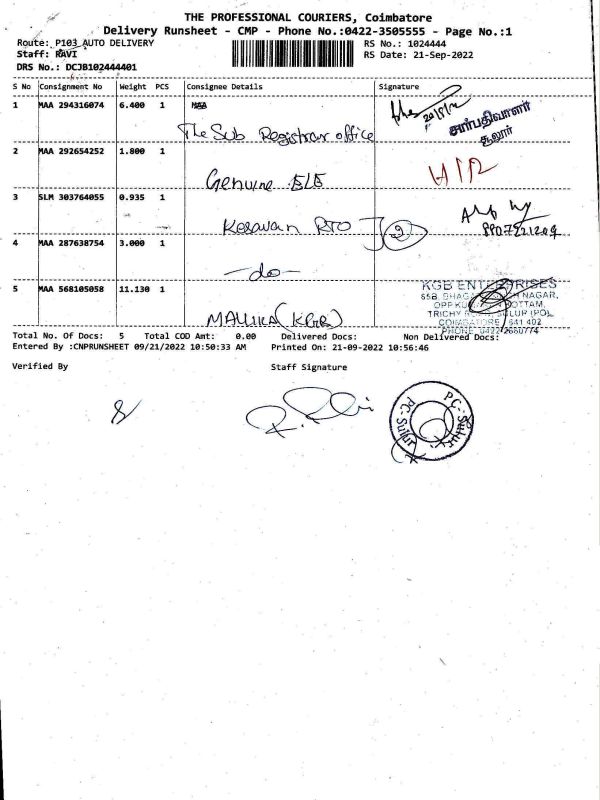 THE PROFESSIONAL COURIERS, Coimbatore
Delivery Runsheet - CMP - Phone No.:0422-3505555 - Page No.:1
Route: P103 AUTO DELIVERY
RS No.: 1024444
Staff: RAVI
RS Date: 21-Sep-2022
DRS No.: DCJB102444401
S No Consignment No Weight PCS Consignee Details Signature
1 MAA 294316074 6.400 1
சார்பதிவாளர்
சூலூர்
The Sub Registrar office
2 MAA 292654252 1.800 1
Genuine
3 SLM 303764055 0.935 1
Kesavan RTO
2
4 MAA 287638754 3.000 1
-do-
5 MAA 568105058 11.130 1
KGB ENTERPRISES
NAGAR,
TRICHY SULUR (PO),
COIMBATORE 641 402
PHONE: 0422-2680774
MALLIKA (KGB)
Total No. Of Docs: 5 Total COD Amt: 0.00 Delivered Docs: Non Delivered Docs:
Entered By :CNPRUNSHEET 09/21/2022 10:50:33 AM Printed On: 21-09-2022 10:56:46
Verified By Staff Signature
PC-Sulur
PC-Sulur